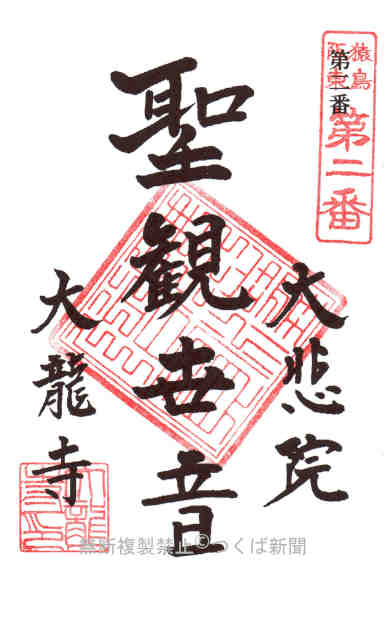 猿島
阪東
第二番
第二番
大悲院
聖観世音
大龍寺
無断複製禁止©つくば新聞